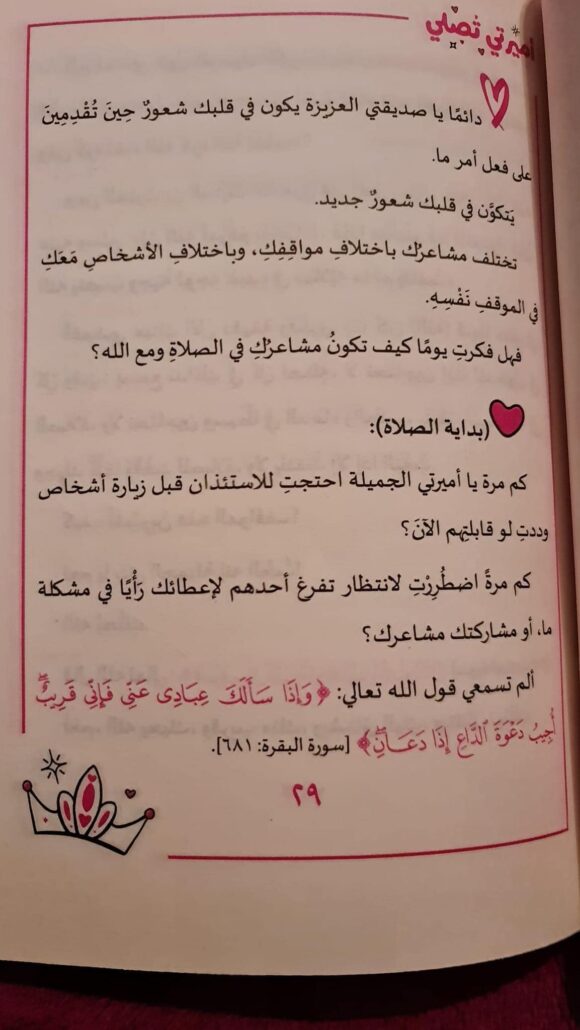 أميرتي تُصلي
دائمًا يا صديقتي العزيزة يكون في قلبك شعورٌ حِينَ تُقْدِمِينَ
على فعل أمر ما.
يَتكوَّن في قلبك شعورٌ جديد.
تختلف مشاعرُك باختلافِ مواقِفِكِ، وباختلافِ الأشخاصِ مَعَكِ
في الموقفِ نَفْسِهِ.
فهل فكرتِ يومًا كيف تكونُ مشاعرُكِ في الصلاةِ ومع الله؟
(بداية الصلاة):
كم مرة يا أميرتي الجميلة احتجتِ للاستئذان قبل زيارة أشخاص
وددتِ لو قابلتِهم الآنَ؟
كم مرةً اضطُرِرْتِ لانتظار تفرغ أحدهم لإعطائك رَأْيًا في مشكلة
ما، أو مشاركتك مشاعرك؟
ألم تسمعي قول الله تعالي: ﴿وَإِذَا سَأَلَكَ عِبَادِى عَنِّى فَإِنِّى قَرِيبٌۖ
أُجِيبُ دَعْوَةَ ٱلدَّاعِ إِذَا دَعَانِۖ﴾ [سورة البقرة: ٦٨١].
٢٩